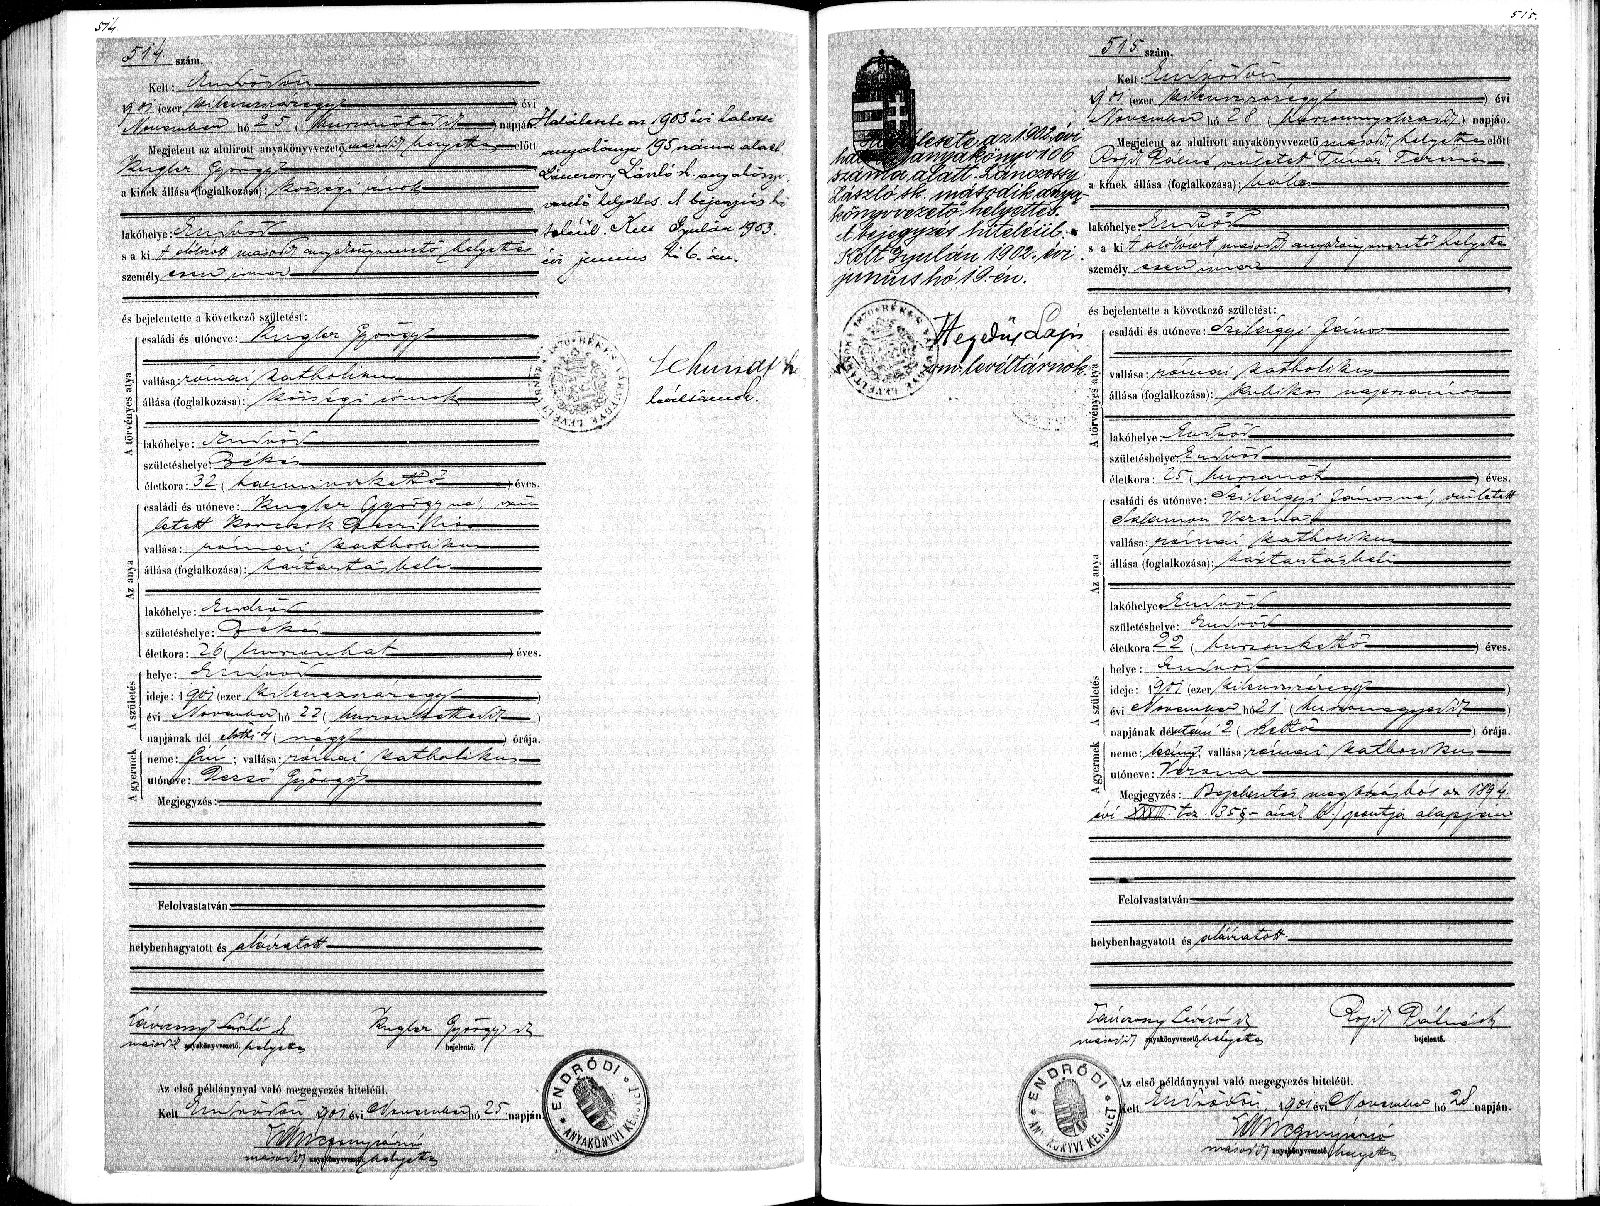 514
514 szám.
Kelt: Endrődön
1901 (ezer kilencszázegy) évi
November hó 25 (huszonötödik) napján
Megjelent az alulirott anyakönyvvezető második helyettes előtt
Kugler György
a kinek állása (foglalkozása): községi irnok
lakóhelye: Endrőd
s a ki t alólirott másodk anyakönyvvezető helyettes
személy esen ismer
és bejelentette a következő születést:
A törvényes atya
családi és utóneve: Kugler György
vallása: római katholikus
állása (foglalkozása): községi irnok
lakóhelye: Endrőd
születéshelye: Békés
életkora: 32 (harminckettő) éves.
Az anya
családi és utóneve: Kugler Györgyné, szü
letett Kovcsok
vallása: római katholikus
állása (foglalkozása): háztartásbeli
lakóhelye: Endrőd
születéshelye: Békés
életkora: 26 (huszonhat) éves.
A születés
helye: Endrőd
ideje: 1901 (ezer kilencszázegy)
évi November hó 22 (huszonkettedik)
napjának dél előtti 4 (négy) órája.
A gyermek
neme: fiú; vallása: római katholikus
utóneve: Dezső György
Megjegyzés:
Felolvastatván,
helybenhagyatott és aláiratott
László
második anyakönyvvezető helyettes
Kugler György sk
bejelentő.
Az első példánynyal való megegyezés hiteléül.
Kelt Endrődön 1901 évi November hó 25 napján.
második anyakönyvvezető helyettes
ENDRŐDI ANYAKÖNYVI KERÜLET
Halálesete az 1903 évi halotti
anyakönyv 195 száma alatt
Lánczossy László sk. anyakönyv-
vezető helyettes. A bejegyzés hi
teléül. Kelt Gyulán 1903.
évi junius hó 6. án.
BÉKÉS VÁRMEGYE LEVÉLTÁRNOKA 1870
515.
515 szám.
Kelt Endrődön
1901 (ezer kilencszázegy) évi
November hó 28 (huszonnyolczadik) napján.
Megjelent az alulirott anyakönyvvezető második helyettes előtt
Rojik Pálné született Timár Terézia
a kinek állása (foglalkozása): bába
lakóhelye: Endrőd
s a ki t alólirott másodk anyakönyvvezető helyettes
személy esen ismer
és bejelentette a következő születést:
A törvényes atya
családi és utóneve: Szilágyi János
vallása: római katholikus
állása (foglalkozása): kubikos napszámos
lakóhelye: Endrőd
születéshelye: Endrőd
életkora: 25 (huszonöt) éves.
Az anya
családi és utóneve: Szilágyi Jánosné, született
Salamon Verona
vallása: római katholikus
állása (foglalkozása): háztartásbeli
lakóhelye: Endrőd
születéshelye: Endrőd
életkora: 22 (huszonkettő) éves.
A születés
helye: Endrőd
ideje: 1901 (ezer kilencszázegy)
évi November hó 21 (huszonegyedik)
napjának délutáni 2 (kettő) órája.
A gyermek
neme: leány; vallása: római katholikus
utóneve: Verona
Megjegyzés: Bejelentés megbizásból az 1894.
évi XXXIII tcz 35 §-ának b.) pontja alapján
Felolvastatván
helybenhagyatott és aláiratott
második anyakönyvvezető helyettes
Rojik Pálné sk
bejelentő.
Az első példánynyal való megegyezés hiteléül.
Kelt Endrődön 1901 évi November hó 28 napján.
második anyakönyvvezető helyettes
ENDRŐDI ANYAKÖNYVI KERÜLET
Halálesete az 1902 évi
halotti anyakönyv 106
száma alatt. Lánczossy
László sk. második anya
könyvvezető helyettes.
A bejegyzés hiteléül.
Kelt Gyulán 1902. évi
junius hó 19-én.
Hegedüs Lajos
vm. levéltárnok
BÉKÉS VÁRMEGYE LEVÉLTÁRNOKA 1870